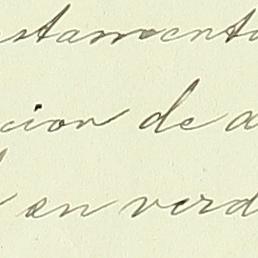 stamento
cion de a
en verd